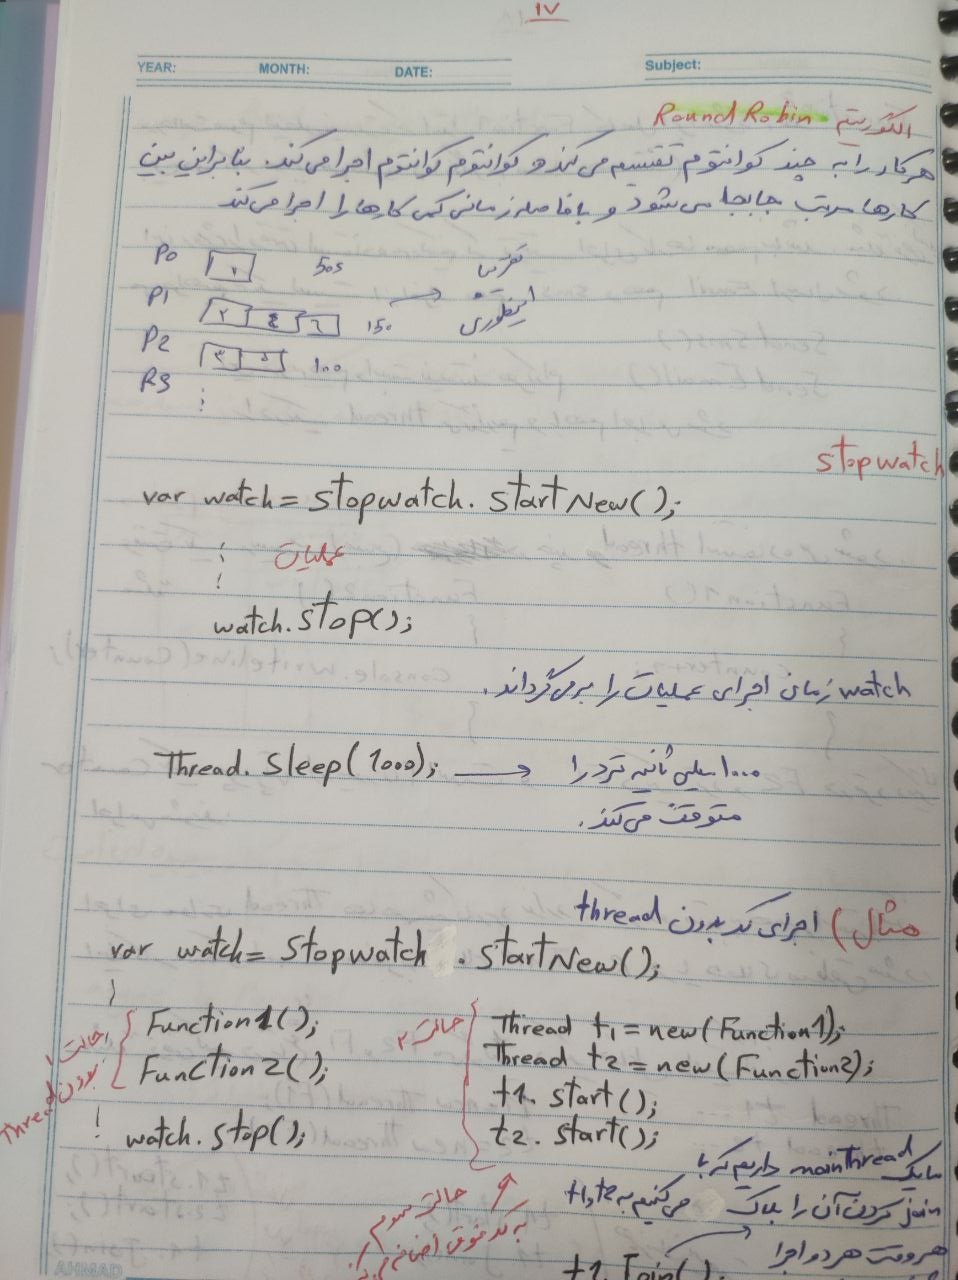 ۱۷
YEAR: MONTH: DATE: Subject:
الگوریتم Round Robin
هر کار را به چند کوانتوم تقسیم می کند و کوانتوم کوانتوم اجرا می کند. بنابراین بین
کارها مرتب جابجا می شود و با فاصله زمانی کمی کارها را اجرا می کند
P0 ۱ 50s تقریبا
P1 ۲ ٤ ٦ 150 → اینطوری
P2 ۳ ۵ 100
P3
stopwatch
var watch = stopwatch. startNew();
عملیات
watch. stop();
watch زمان اجرای عملیات را بر می گرداند.
Thread. Sleep(1000); → ۱۰۰۰ میلی ثانیه ترد را
متوقف می کند.
مثال) اجرای کد بدون thread
var watch = Stopwatch . startNew();
حالت ۱ بدون Thread
Function1();
Function2();
watch. stop();
حالت ۲
Thread t1 = new(Function1);
Thread t2 = new(Function2);
t1. start();
t2. start();
ما یک mainThread داریم که با
join کردن آن را بلاک می کنیم به t1,t2
هر وقت هر دو اجرا
حالت سوم
به کد فوق اضافه
t1. Join();
AHMAD